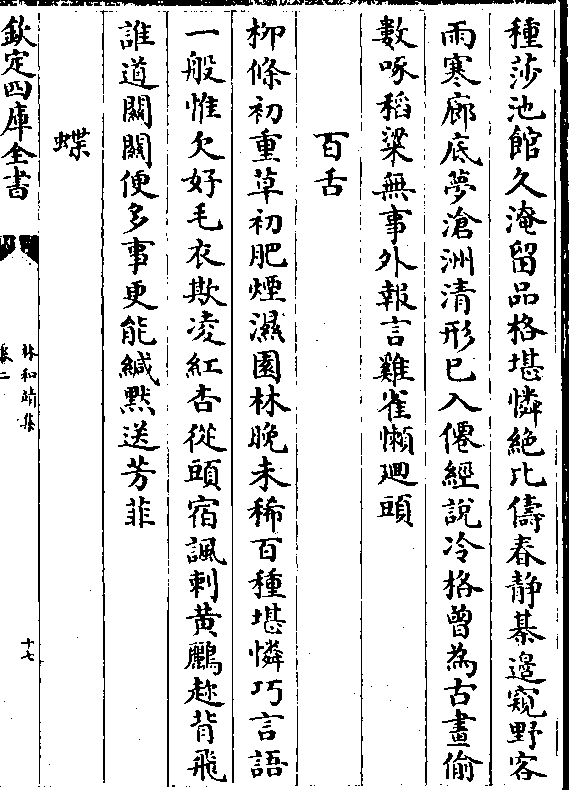 種莎池館久淹留品格堪憐絶比儔春静棊邊窺野客
雨寒廊底夢滄洲清形已入僊經說冷格曾為古畫偷
數啄稻粱無事外報言雞雀懶廻頭
百舌
柳條初重草初肥煙濕園林晚未稀百種堪憐巧言語
一般惟欠好毛衣欺凌紅杏從頭宿諷刺黄鸝趂背飛
誰道關關便多事更能緘默送芳菲
蝶
欽定四庫全書
林和靖集
卷二
十七